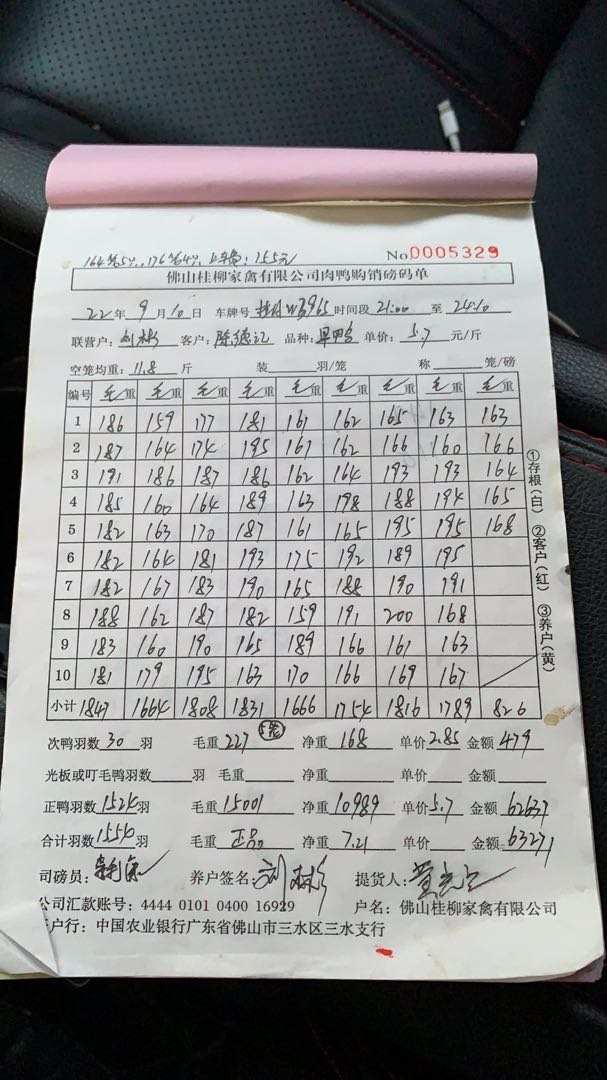 164笼5只,176笼4只, 上车费:155元
No 0005329
佛山桂柳家禽有限公司肉鸭购销磅码单
22年 9月10日 车牌号 桂 W3965 时间段 21:00 至 24:10
联营户: 客户: 陈德记 品种: 鸭 单价: 5.7 元/斤
空笼均重: 11.8 斤 装 羽/笼 称 笼/磅
编号 毛重 毛重 毛重 毛重 毛重 毛重 毛重 毛重 毛重
1 186 159 177 181 161 162 165 163 163
2 187 164 174 195 167 162 166 160 166
3 191 186 187 186 162 164 193 193 164
4 185 160 164 189 163 198 188 194 165
5 182 163 170 187 161 165 195 195 168
6 182 164 181 193 175 192 189 195
7 182 167 183 190 165 188 190 191
8 188 162 187 182 159 191 200 168
9 183 160 190 165 189 166 161 163
10 181 179 195 163 170 166 169 167
小计 1847 1664 1808 1831 1666 1754 1816 1789 826
次鸭羽数 30 羽 毛重 227 5笼 净重 168 单价 2.85 金额 479
光板或叮毛鸭羽数 羽 毛重 净重 单价 金额
正鸭羽数 1524 羽 毛重 15001 净重 10989 单价 5.7 金额 62637
合计羽数 1554 羽 毛重 正品 净重 7.21 单价 金额 63271
司磅员: 养户签名: 刘 提货人:
公司汇款账号: 4444 0101 0400 16929 户名: 佛山桂柳家禽有限公司
户行: 中国农业银行广东省佛山市三水区三水支行
①存根(白) ②客户(红) ③养户(黄)